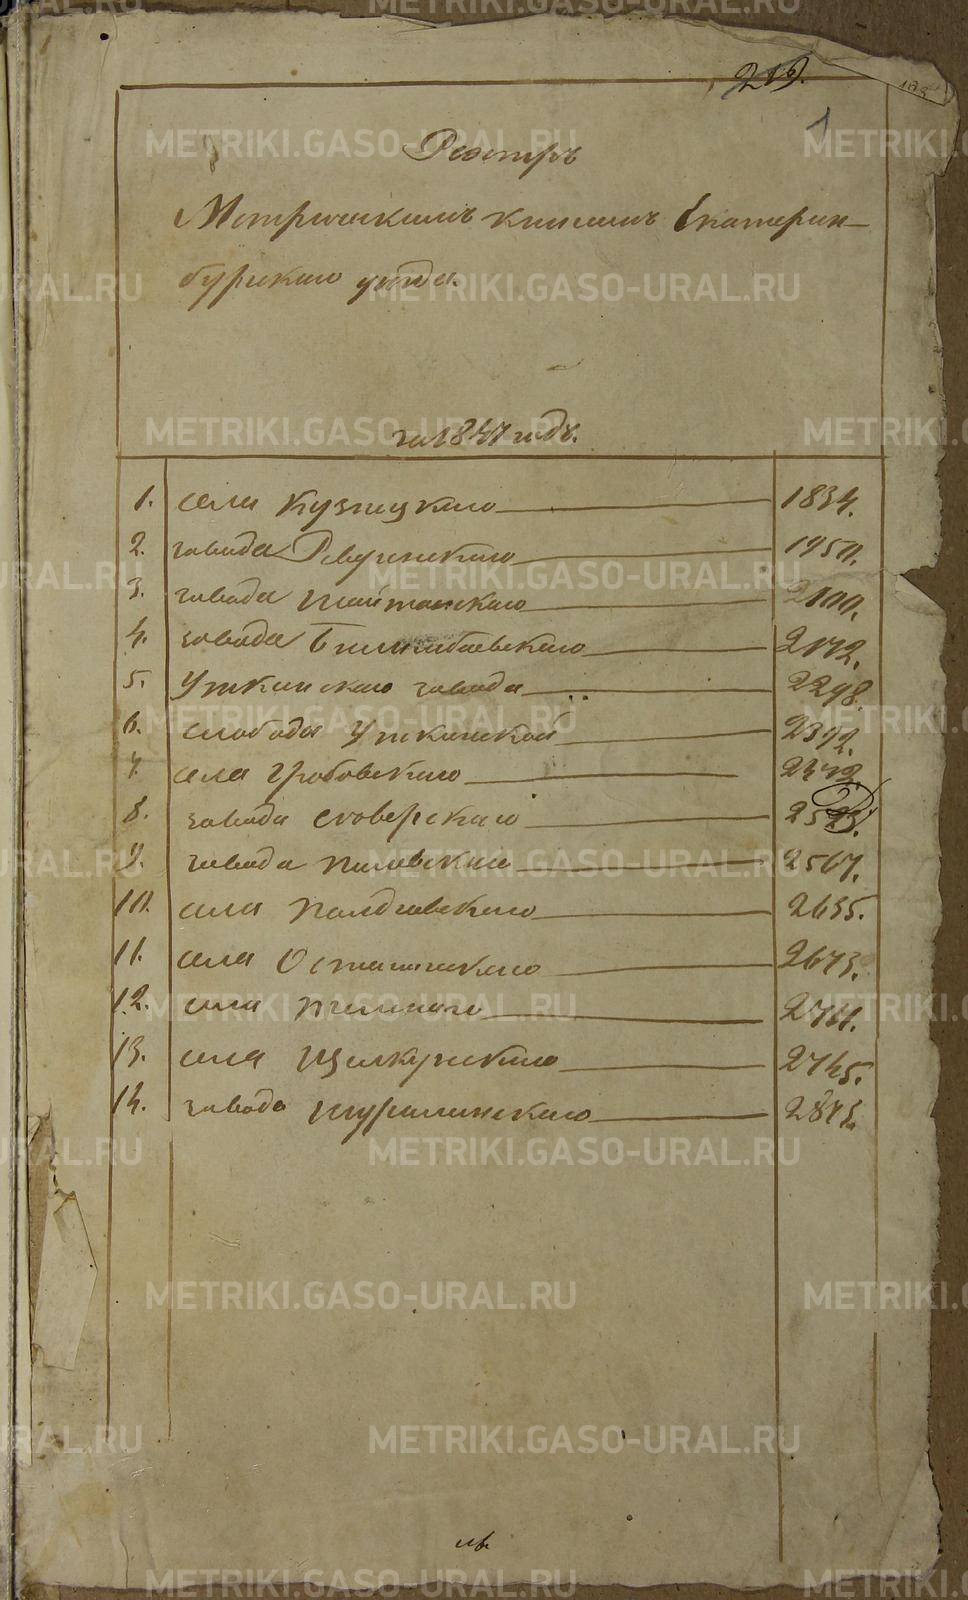 219.
1
Реэстръ
Метрическимъ книгамъ Екатерин-
бургскаго уезда.
на 1847 годъ.
1. села Кузнецкаго 1834.
2. завода Ревдинскаго 1950.
3. завода Шайтанскаго 2100.
4. завода Билимбаевскаго 2172.
5. Уткинскаго завода 2298.
6. слободы Уткинской 2392.
7. села Гробовскаго
8. завода Сѣверскаго
9. завода Полевскаго 2567.
10. села Полдневскаго 2635.
11. села Осташинскаго 2673.
12. села
13. села Щелкунскаго 2745.
14. завода Шуралинскаго
METRIKI.GASO-URAL.RU